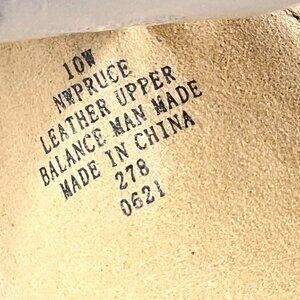 10W
NWPRUCE
LEATHER UPPER
BALANCE MAN MADE
MADE IN CHINA
278
0621